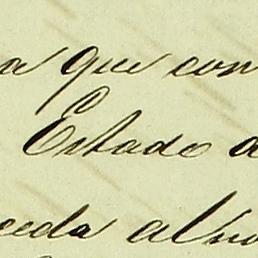 a que con
Estado a
ceda al